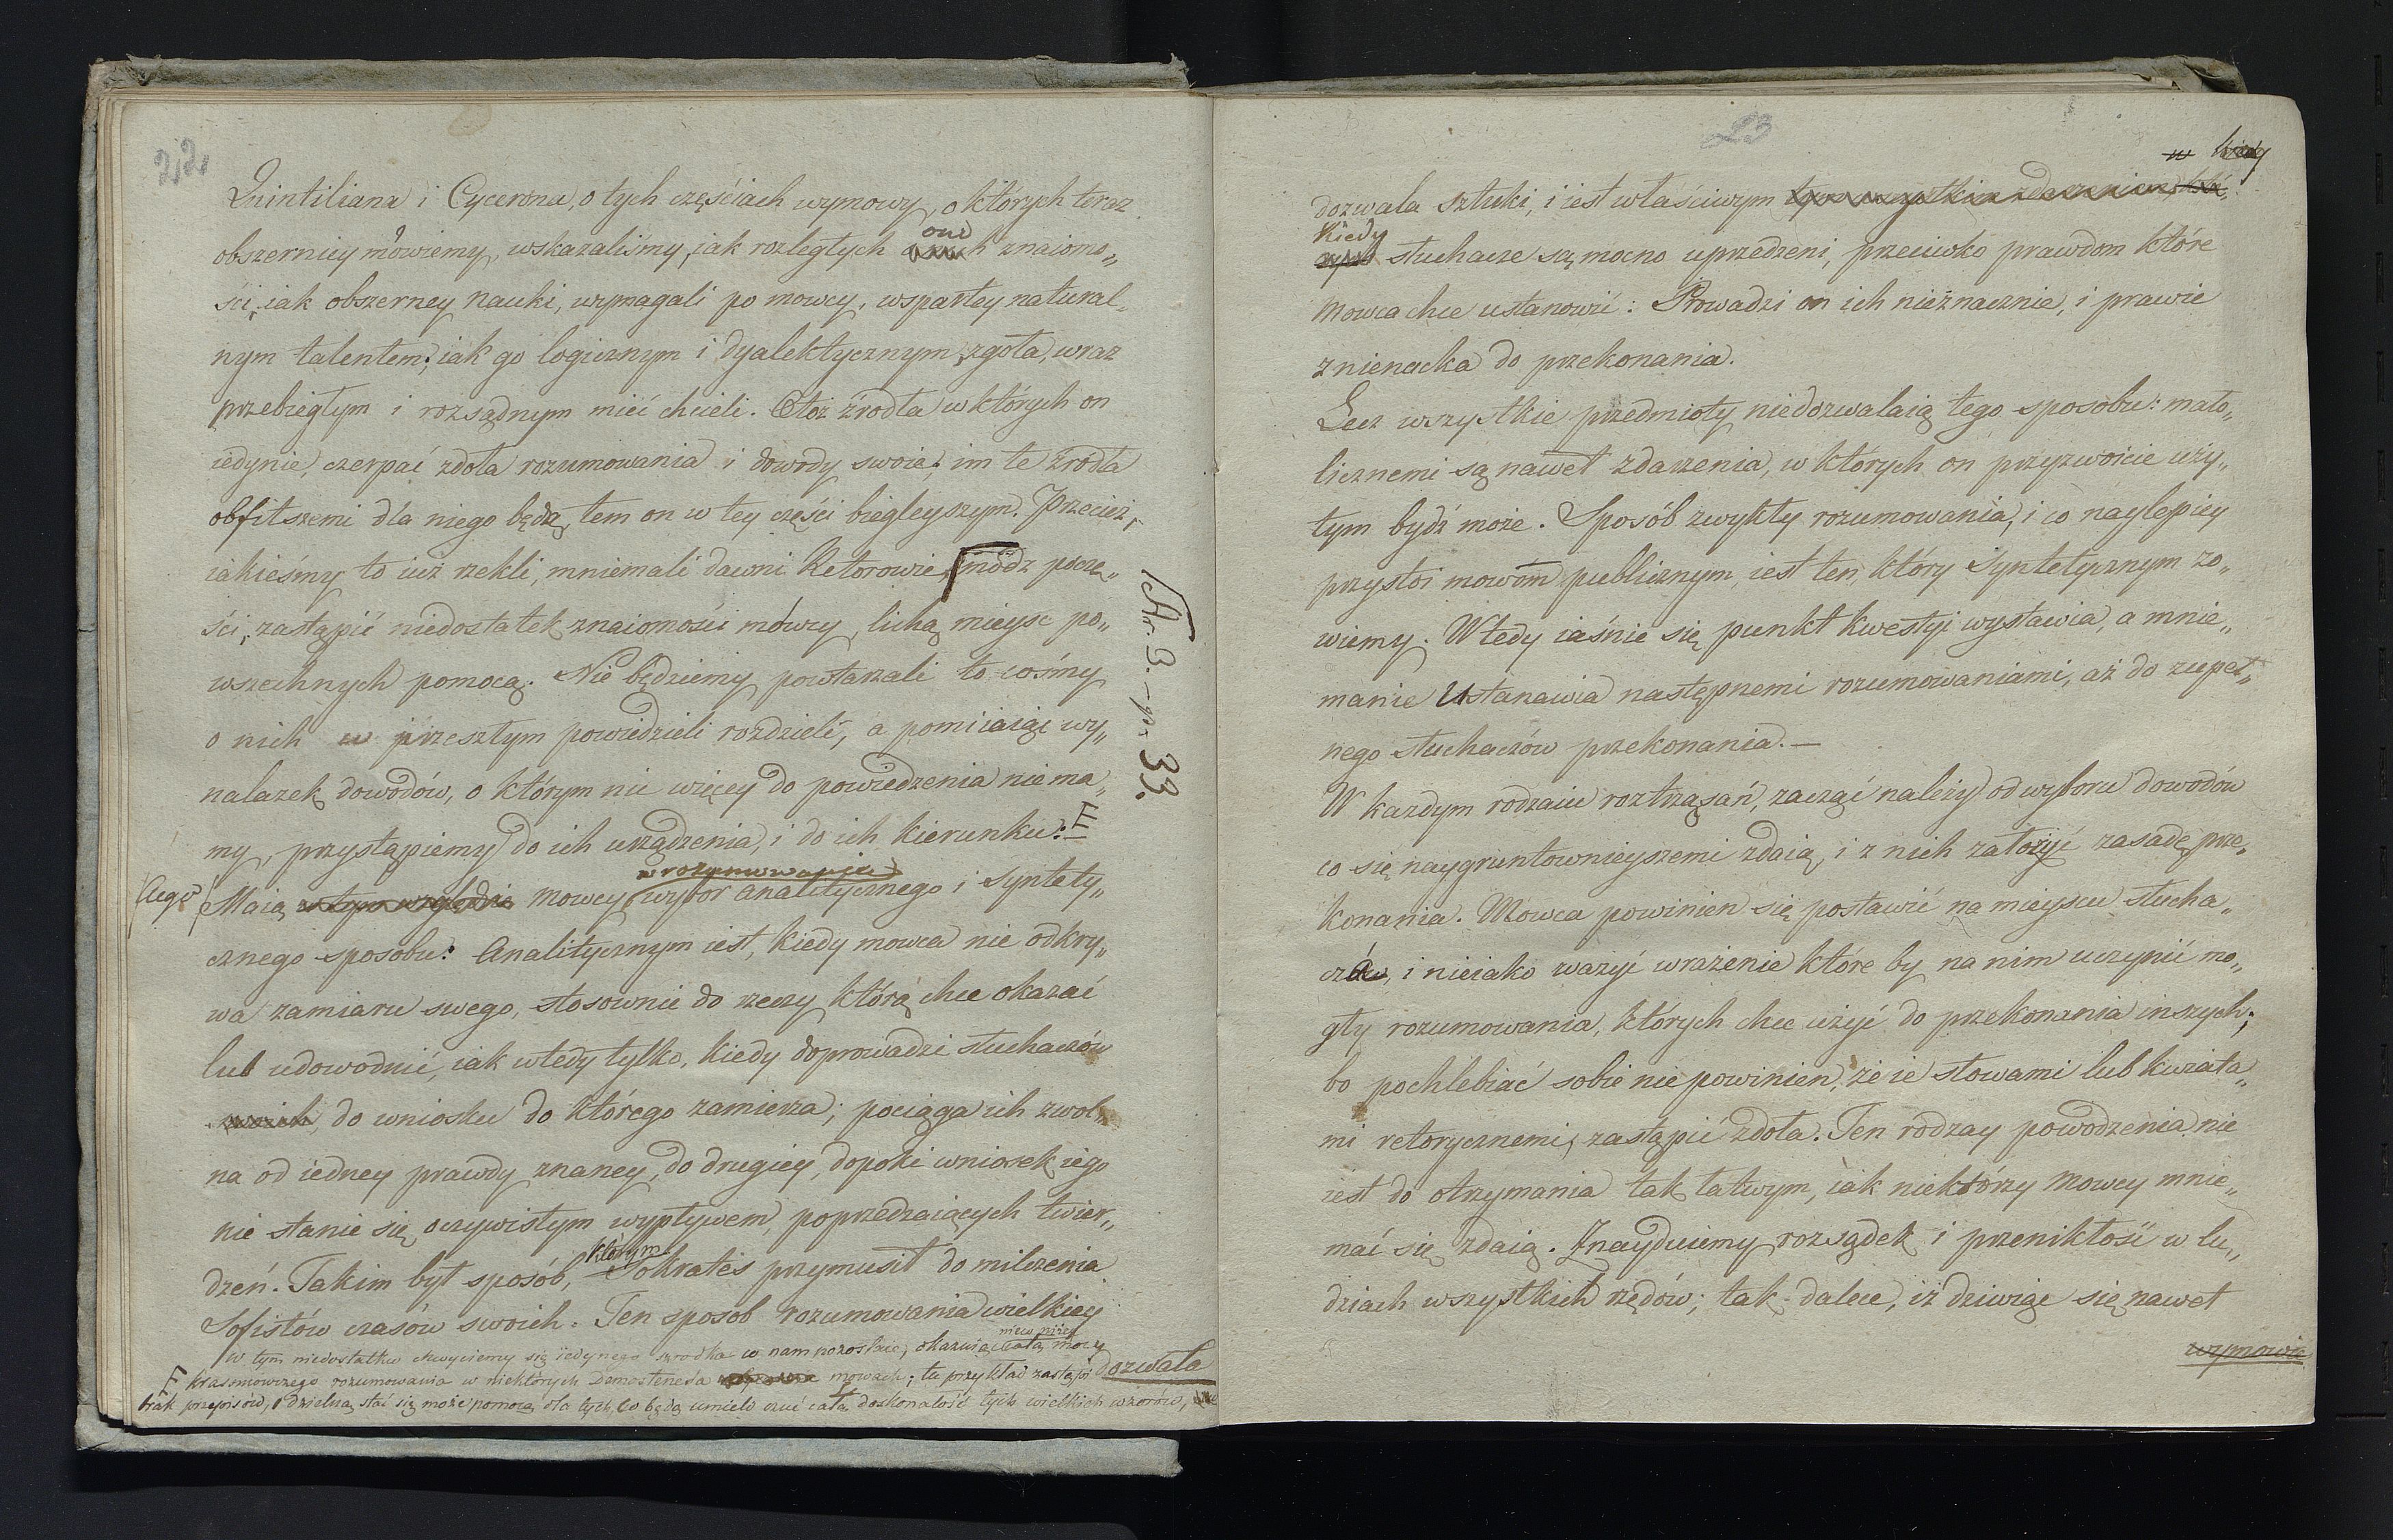 22
Quintiliana i Cycerona, o tych częściach wymowy, o których teraz
obszerniey mówiemy, wskazaliśmy, jak rozległych znaiomo„
one
ści, iak obszerney nauki, wymagali po mowcy, wspartey natural„
nym talentem; iak go logicznym i dyalektycznym, zgoła, wraz
przebiegłym i rozsądnym mieć chcieli. Otoż źrodła w których on
iedynie, czerpać zdoła rozumowania i dowody swoie; im te źrodła
obfitszemi dla niego będą, tem on w tey części biegleyszym. Przecież,
iakieśmy to iuż rzekli, mniemali dawni Retorowie, módz po czę„
ści, zastąpić niedostatek znaiomości mówcy, lichą mieysc po„
wszechnych pomocą. Nie będziemy powtarzali to cośmy
o nich w przeszłym powiedzieli rozdziele, a pomiiaiąc wy„
nalazek dowodów, o którym nic więcey do powiedzenia nie ma„
my, przystąpiemy do ich urządzenia, i do ich kierunku: F
w rozumowaniu
Maią w tym względzie mowcy wybor analitycznego i Syntety„
cznego sposobu: Analitycznym iest, kiedy mowca nie odkry„
wa zamiaru swego, stosownie do rzeczy którą chce okazać
lub udowodnić, iak wtedy tylko, kiedy doprowadzi słuchaczów
swoich, do wniosku do którego zamierza; pociąga ich zwol„
na od iedney prawdy znaney, do drugiey, dopoki wniosek iego
nie stanie się oczywistym wypływem, poprzedzaiących twier„
którym
dzeń. Takim był sposób, Sokrates przymusił do milczenia
Sofistów czasów swoich. Ten sposob rozumowania wielkiey
dozwala
nieco niżey
W tym niedostatku chwyciemy się iedynego śrzodka co nam pozostaie, okazuiąc całą moc
F krasomowczego rozumowania w niektórych Demostenesa mowach; tu przykład zastąpi
brak przepisów, i dzielną stać się może pomocą dla tych, co będą umieli czuć całą doskonałość tych wielkich wzorów,
Ar. 3. - p. 33.
23
w kiedy
dozwala sztuki, i iest właściwym tym wszystkim zdarzeniom,
Kiedy
słuchacze są mocno uprzedzeni, przeciwko prawdom które
mowca chce ustanowić: Prowadzi on ich nieznacznie, i prawie
znienacka do przekonania.
Lecz wszystkie przedmioty niedozwalaią tego sposobu: mało„
licznemi są nawet zdarzenia, w których on przyzwoicie uży„
tym bydź może. Sposób zwykły rozumowania, i co naylepiey
przystoi mowom publicznym, iest ten, który Syntetycznym zo„
wiemy. Wtedy iaśnie się punkt kwestyi wystawia, a mnie„
manie ustanawia następnemi rozumowaniami, aż do zupeł„
nego słuchaczów przekonania.—
W każdym rodzaiu roztrząsań, zacząć należy od wyboru dowodów
co się naygruntownieyszemi zdaią, i z nich założyć zasadę prze„
konania. Mowca powinien się postawić na mieyscu słucha„
cza, i nieiako ważyć wrażenie które by na nim uczynić mo„
gły rozumowania, których chce użyć do przekonania inszych;
bo pochlebiać sobie nie powinien, że ie słowami lub kwiata„
mi retorycznemi, zastąpić zdoła. Ten rodzay powodzenia nie
iest do otrzymania tak łatwym, iak niektórzy mowcy mnie„
mać się zdaią. Znayduiemy rozsądek i przenikłość w lu„
dziach wszystkich rzędów; tak dalece, iż dziwiąc się nawet
wymowie